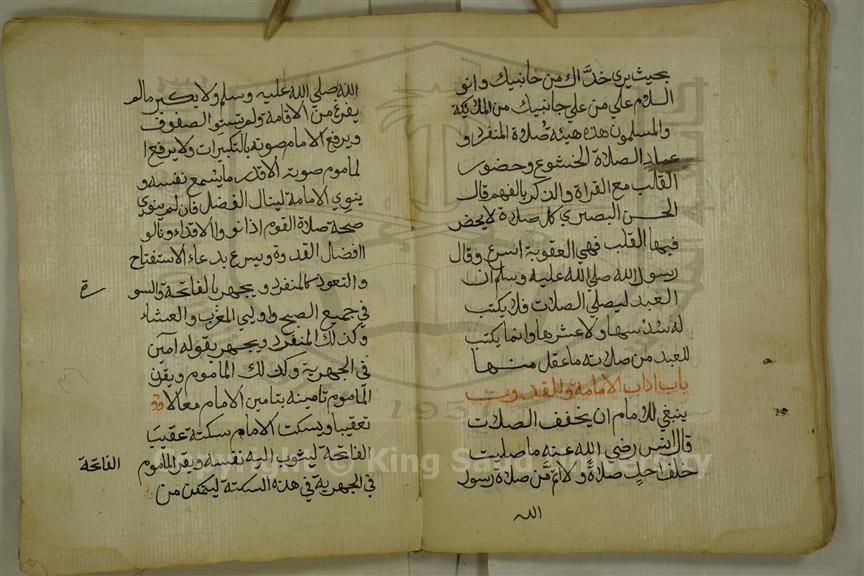 بحيث يري خدَّاك من جانبيك وانو
السلام علي من علي جانبيك من الملايكة
والمسلمون هذه هيئة صلاة المنفرد و
عماد الصلاة الخشوع وحضور
القلب مع القراة والذكر بالفهم قال
الحسن البصري كل صلاة لا يحضر
فيها القلب فهي العقوبة اسرع وقال
رسول الله صلي الله عليه وسلم ان
العبد ليصلي الصلات فلا يكتب
له سدسها ولا عشرها وانما يكتب
للعبد من صلاته ما عقل منها
باب اداب الامامة والقدوت
ينبغي للامام ان يخفف الصلات
قال انس رضي الله عنه ما صليت
خلف احد صلاة ولا اتم من صلاة رسول
الله
الله صلي الله عليه وسلم ولا يكبر مالم
يفرغ من الاقامة ولم تستو الصفوف
ويرفع الامام صوته بالتكبيرات ولا يرفع ا
لماموم صوته الا قدر ما يسمع نفسه و
ينوي الامامة لينال الفضل فان لم ينوي
صحة صلاة القوم اذا نووا الاقتداء ونالو
افضال القدوة ويسرع بدعاء الاستفتاح
والتعوذ كالمنفرد ويجهر بالفاتحة والسو
رة
في جميع الصبح واولي المغرب والعشاء
وكذلك المنفرد ويجهر بقوله آمين
في الجهرية وكذلك الماموم ويقرن
الماموم تامينه بتامين الامام معا لا
تعقيبا ويسكت الامام سكتة عقيب
الفاتحة ليثوب اليه نفسه ويقرا الماموم
الفاتحة
في الجهرية في هذه السكتة ليتمكن من
Copyright © King Saud University
1957